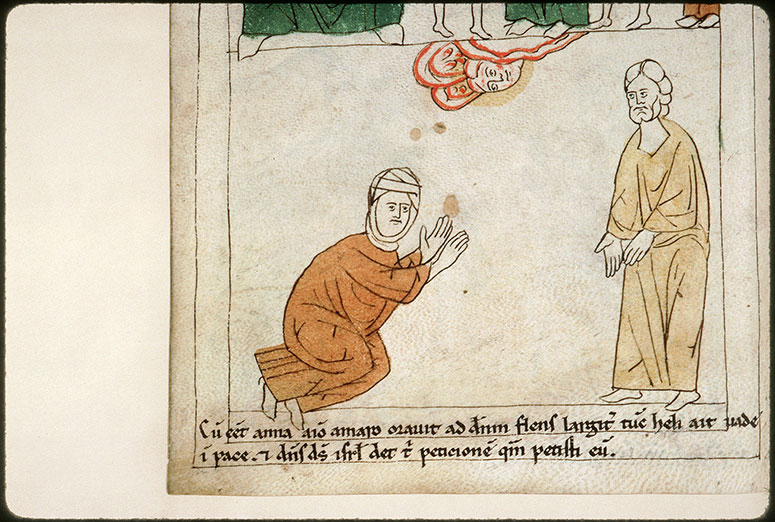 Cū eēt anna aīo amaro orauit ad dn̄m flens largit᷑ tūc heli ait uade
ī pace. ⁊ dn̄s ds̄ isrl̄ det t̄ peticionē qm̄ petisti eū.